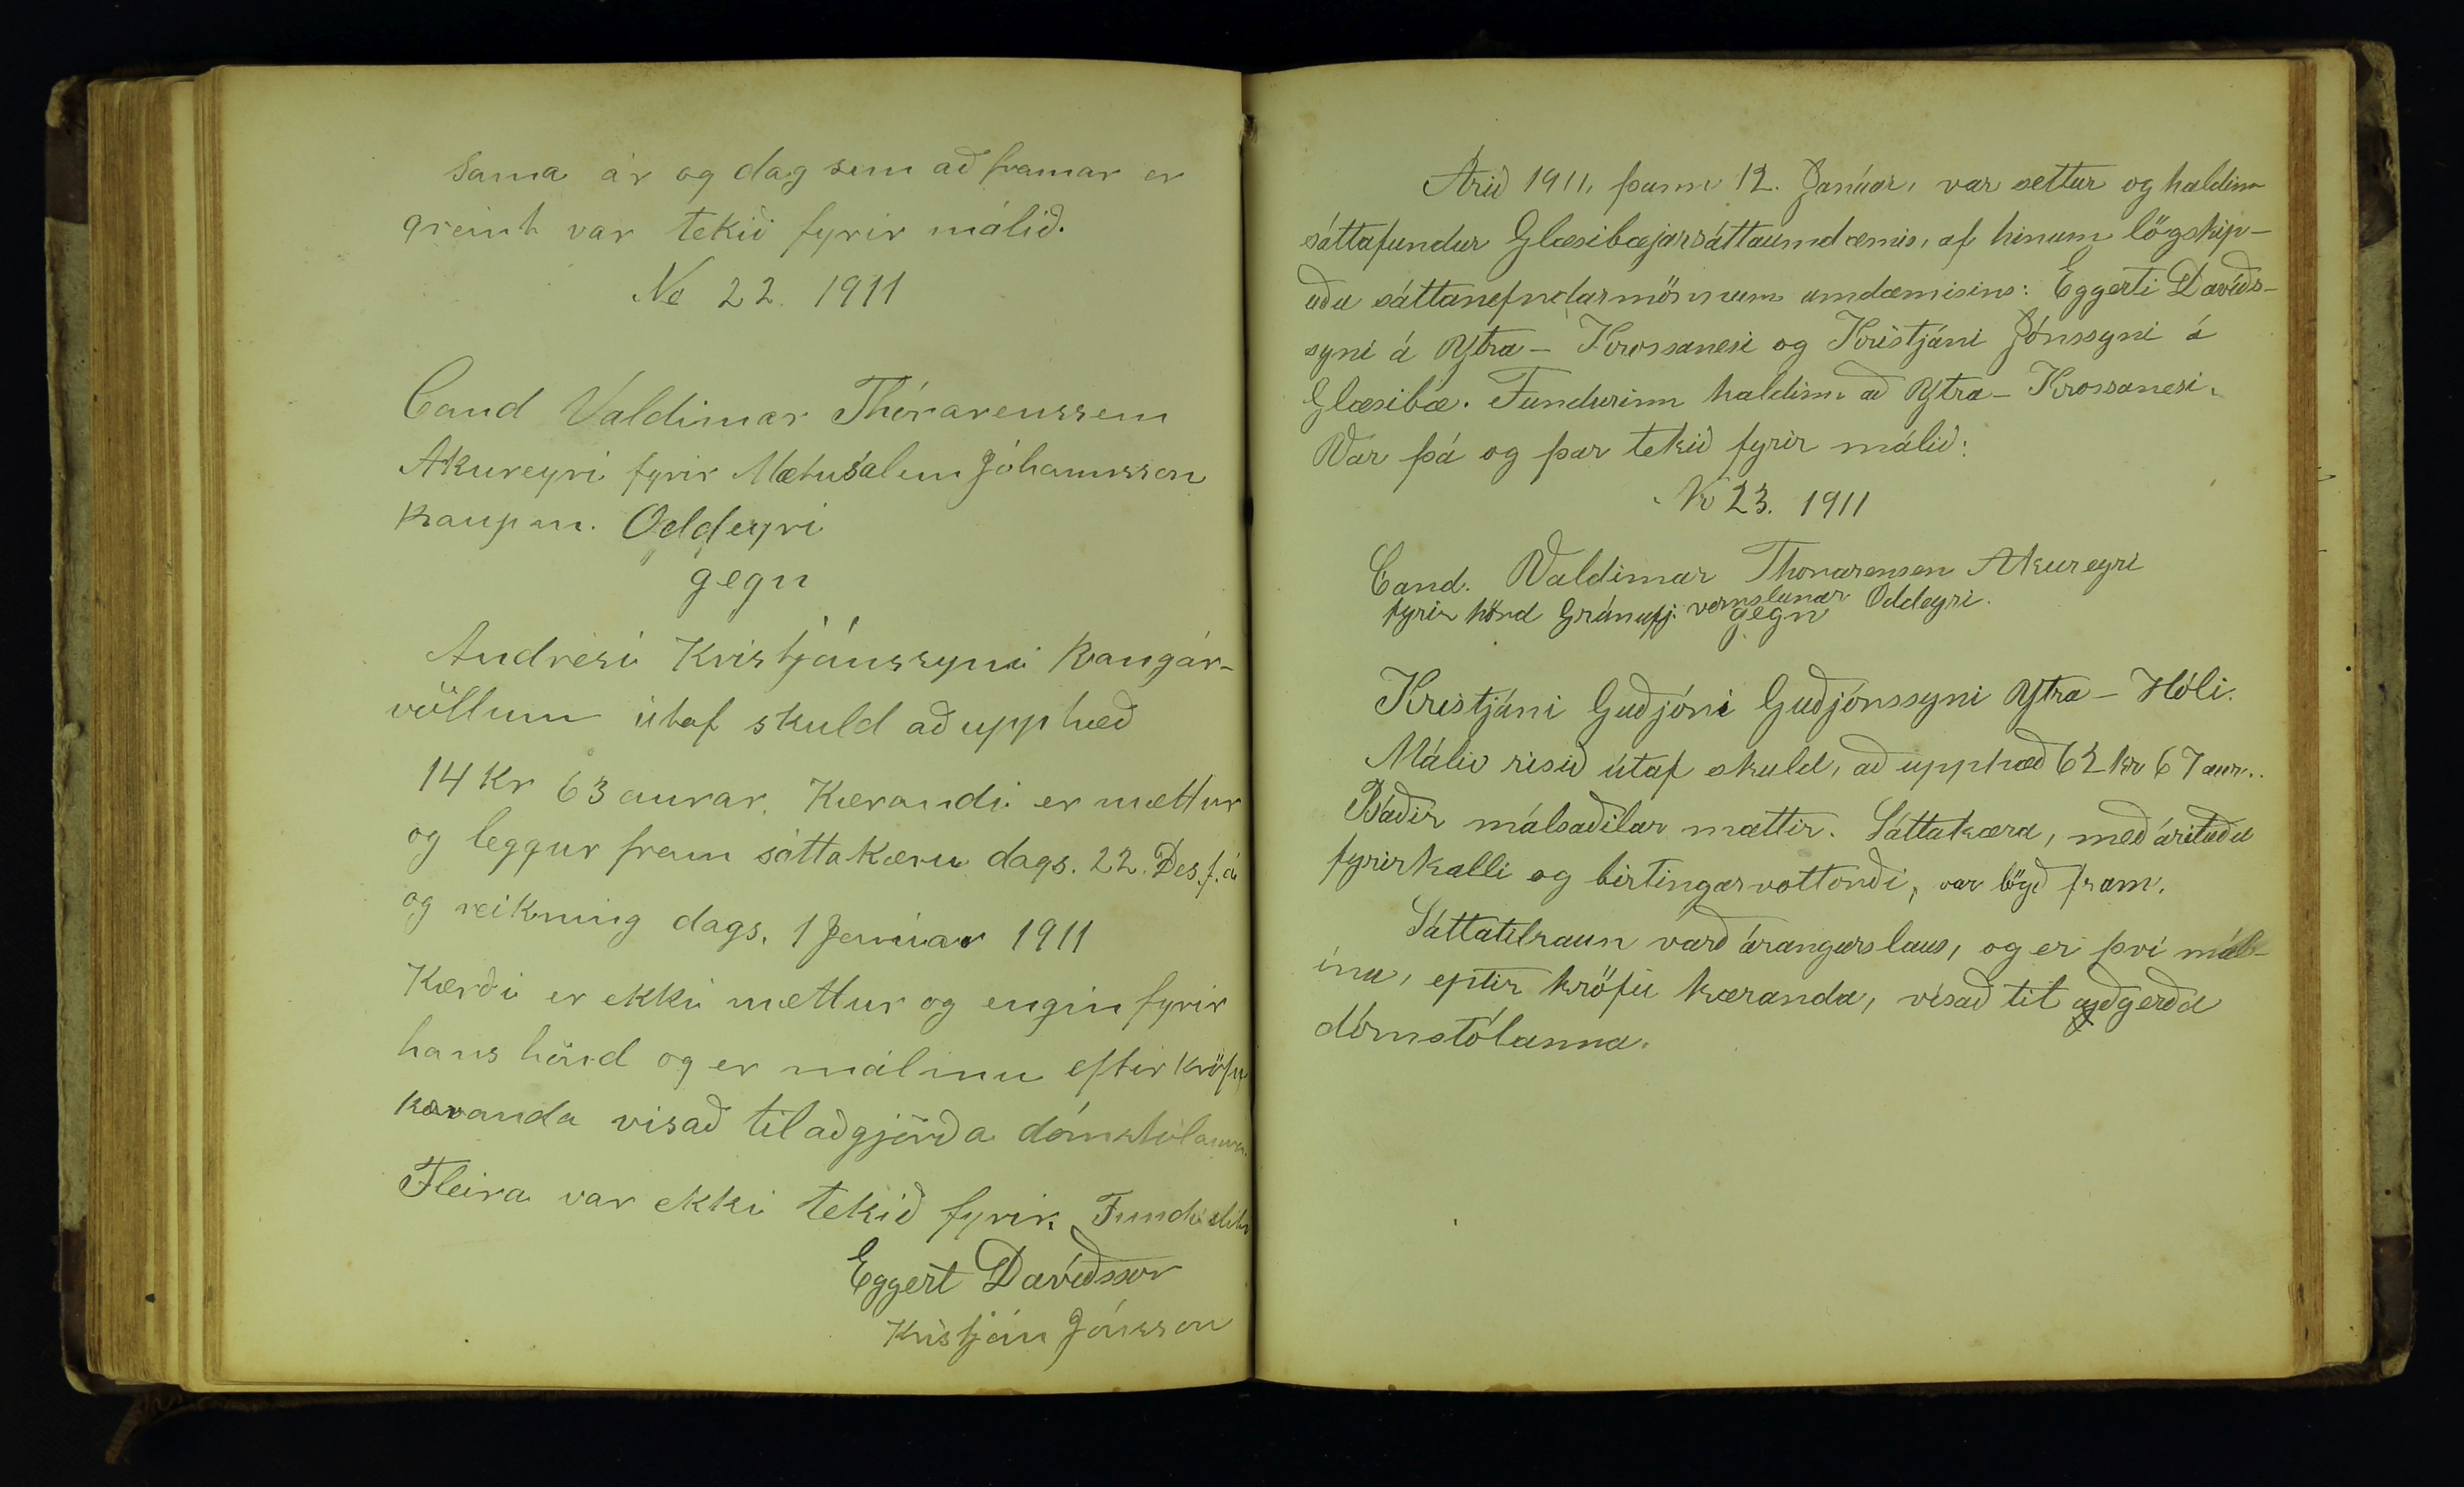 Sama ár og dag sem að framar er
greint var tekið fyrir málið.
No 22. 1911
Cand Valdimar Thórarenssen
Akureyri fyrir Metúsalem Jóhannsson
kaupm. Oddeyri
gegn
Andrési Kristjánssyni Rangár-
völlum útaf skuld að upphæð
14 Kr 63 aurar. Kærandi er mættur
og leggur fram sáttakæru dags. 22. Des. f. á
og reikning dags. 1 Janúar 1911
Kærði er ekki mættur og engin fyrir
hans hönd og er málinu eftir kröfu
kæranda visað til aðgjörða dómstólanna.
Fleira var ekki tekið fyrir. Fundi slitið
Eggert Davíðsson
Kristján Jónsson
Árið 1911, þann 12. Janúar, var settur og haldinn
sáttafundur Glæsibæjarsáttaumdæmis, af hinum lögskip-
uðu sáttanefndarmönnum umdæmisins: Eggerti Davíðs-
syni á Ytra-Krossanesi og Kristjáni Jónssyni á
Glæsibæ. Fundurinn haldinn að Ytra-Krossanesi.
Var þá og þar tekið fyrir málið:
No 23. 1911
Cand. Valdimar Thorarensen Akureyri
fyrir hönd Gránufj. verzslunar Oddeyri.
gegn
Kristjáni Guðjóni Guðjónssyni Ytra-Hóli.
Málið risið útaf skuld, að upphæð 62 kr 67 aur..
Báðir málsaðilar mættir. Sáttakæra, með árituðu
fyrirkalli og birtingarvottorði, var lögð fram.
Sáttatilraun varð árangurslaus, og er því mál-
inu, eptir kröfu kæranda, vísað til aðgerða
dómstólanna.